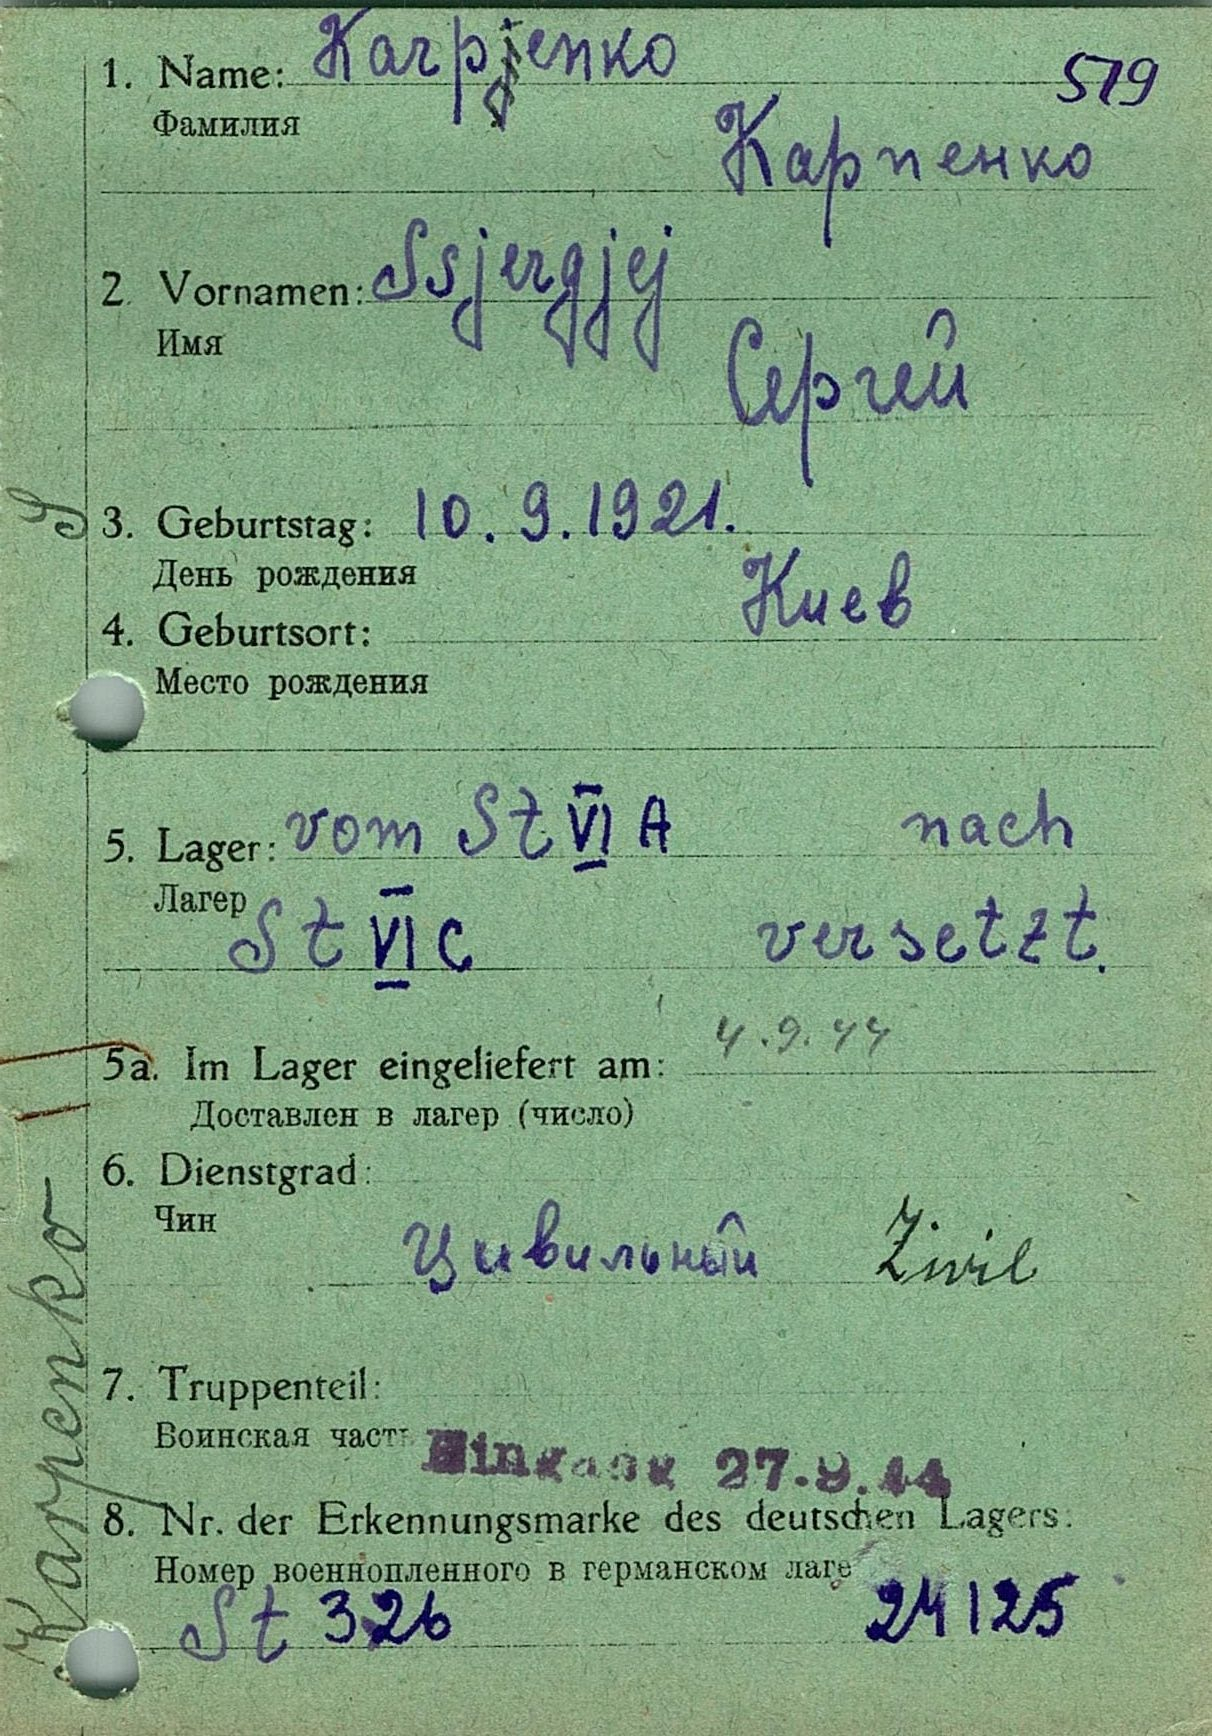 1. Name: Karpjenko
519
Фамилия
Карпенко
2. Vornamen: Ssjergjej
Имя
Сергей
S
3. Geburtstag: 10. 9. 1921.
День рождения
Киев
4. Geburtsort:
Место рождения
5. Lager: vom St VI A nach
Лагер
St VI C versetzt.
4.9.44
5a. Im Lager eingeliefert am:
Доставлен в лагер (число)
6. Dienstgrad:
Чин
Цивильный Zivil
7. Truppenteil:
Воинская часть
Eingang 27.9.44
8. Nr. der Erkennungsmarke des deutschen Lagers:
Номер военнопленного в германском лаге
St 326 24125
Karpenko